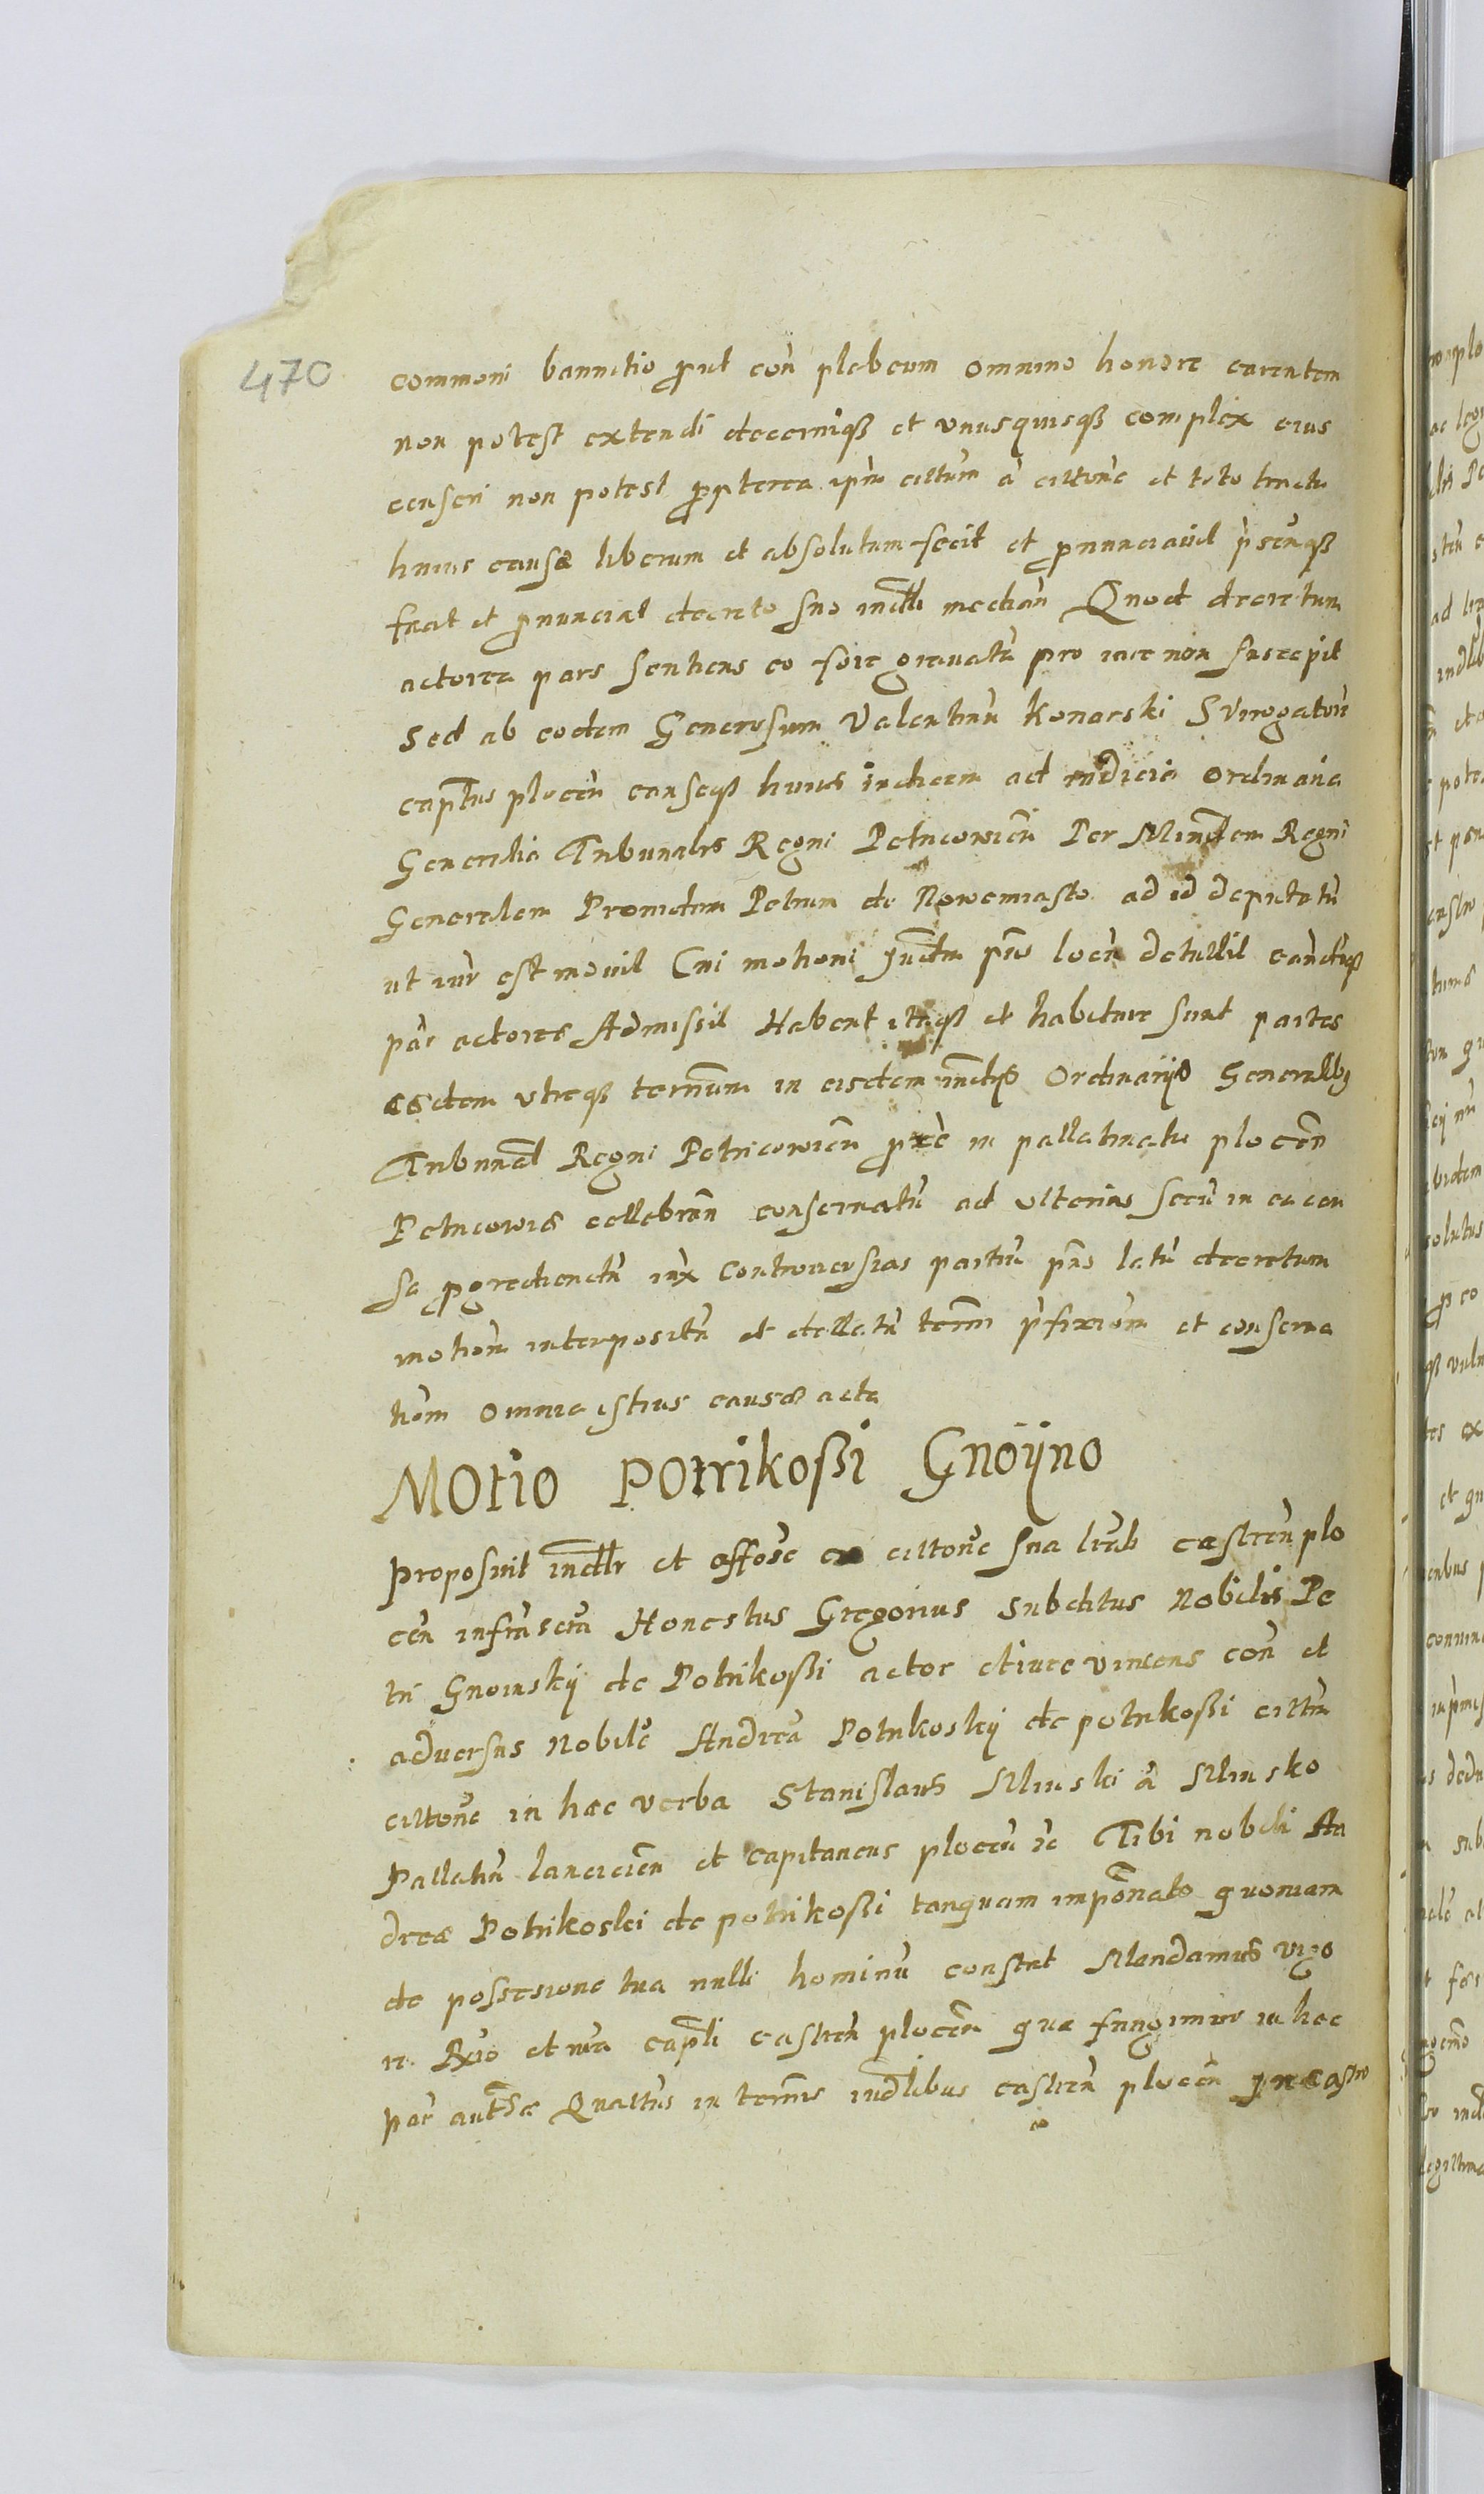 470
commoni bannitio prut con plebeum omnino honore carentem
non potest extendi decerniqȝ et vnusquisqȝ complex eius
censeri non potest propterea ipm cittum a cittone et toto tractu
huius causæ liberum et absolutum fecit et pronunciauit pscnqȝ
facit et pronunciat decreto suo iudli median Quod decretum
actorea pars sentiens eo fore grauatu pro iure non suscepit
Sed ab eodem Generosum Valentinu Konarski Surrogatou
captus plocen causeqȝ huius iudicem ad iudicia Ordinaria
Generalia Tribunalis Regni Petricouien Per Ministem Regni
Generalem Prouidum Petrum de Nowemiasto ad id deputatu
ut iur est mouit Cui motioni Iudm pns locu detullit eandeqȝ
par actorea Admissit Habent itaqȝ et habiture sunt partes
eædem vtreqȝ terminum in eisdem iudijs Ordinarijs Generallbȝ
Tribunal Regni Petricouien pro in pallatinatu plocen
Petricouiæ cellebran conseruatu ad vlterius secu in ea cau
sa progrediendu iux controuersias partiu pns latu decretum
motiom interpositu et dellatu termi pfixiom et conserua
tiom omnia istius causæ acta
Motio Potrikossi Gnoijno
Proposuit iudlr et affose ex cittone sua litrab castren plo
cen infrascra Honestus Gregorius subditus Nobilis Pe
tri Gnoinskij de Potrikossi actor et iure vincens con et
adversus Nobile Andrea Potrikoskij de potrikossi cittu
cittone in hæc verba Stanislaus Minski a Minsko
Pallatin lanciden et Capitaneus plocen ic Tibi nobili An
dreæ Potrikoski de potrikossi tanquam imponato quoniam
de possesione tua nulli hominu constat Mandamus vigo
re Rgio et nra captli castren plocen qua fungimur in hac
par autte Quattus in termis iudlibus castren plocen in castro